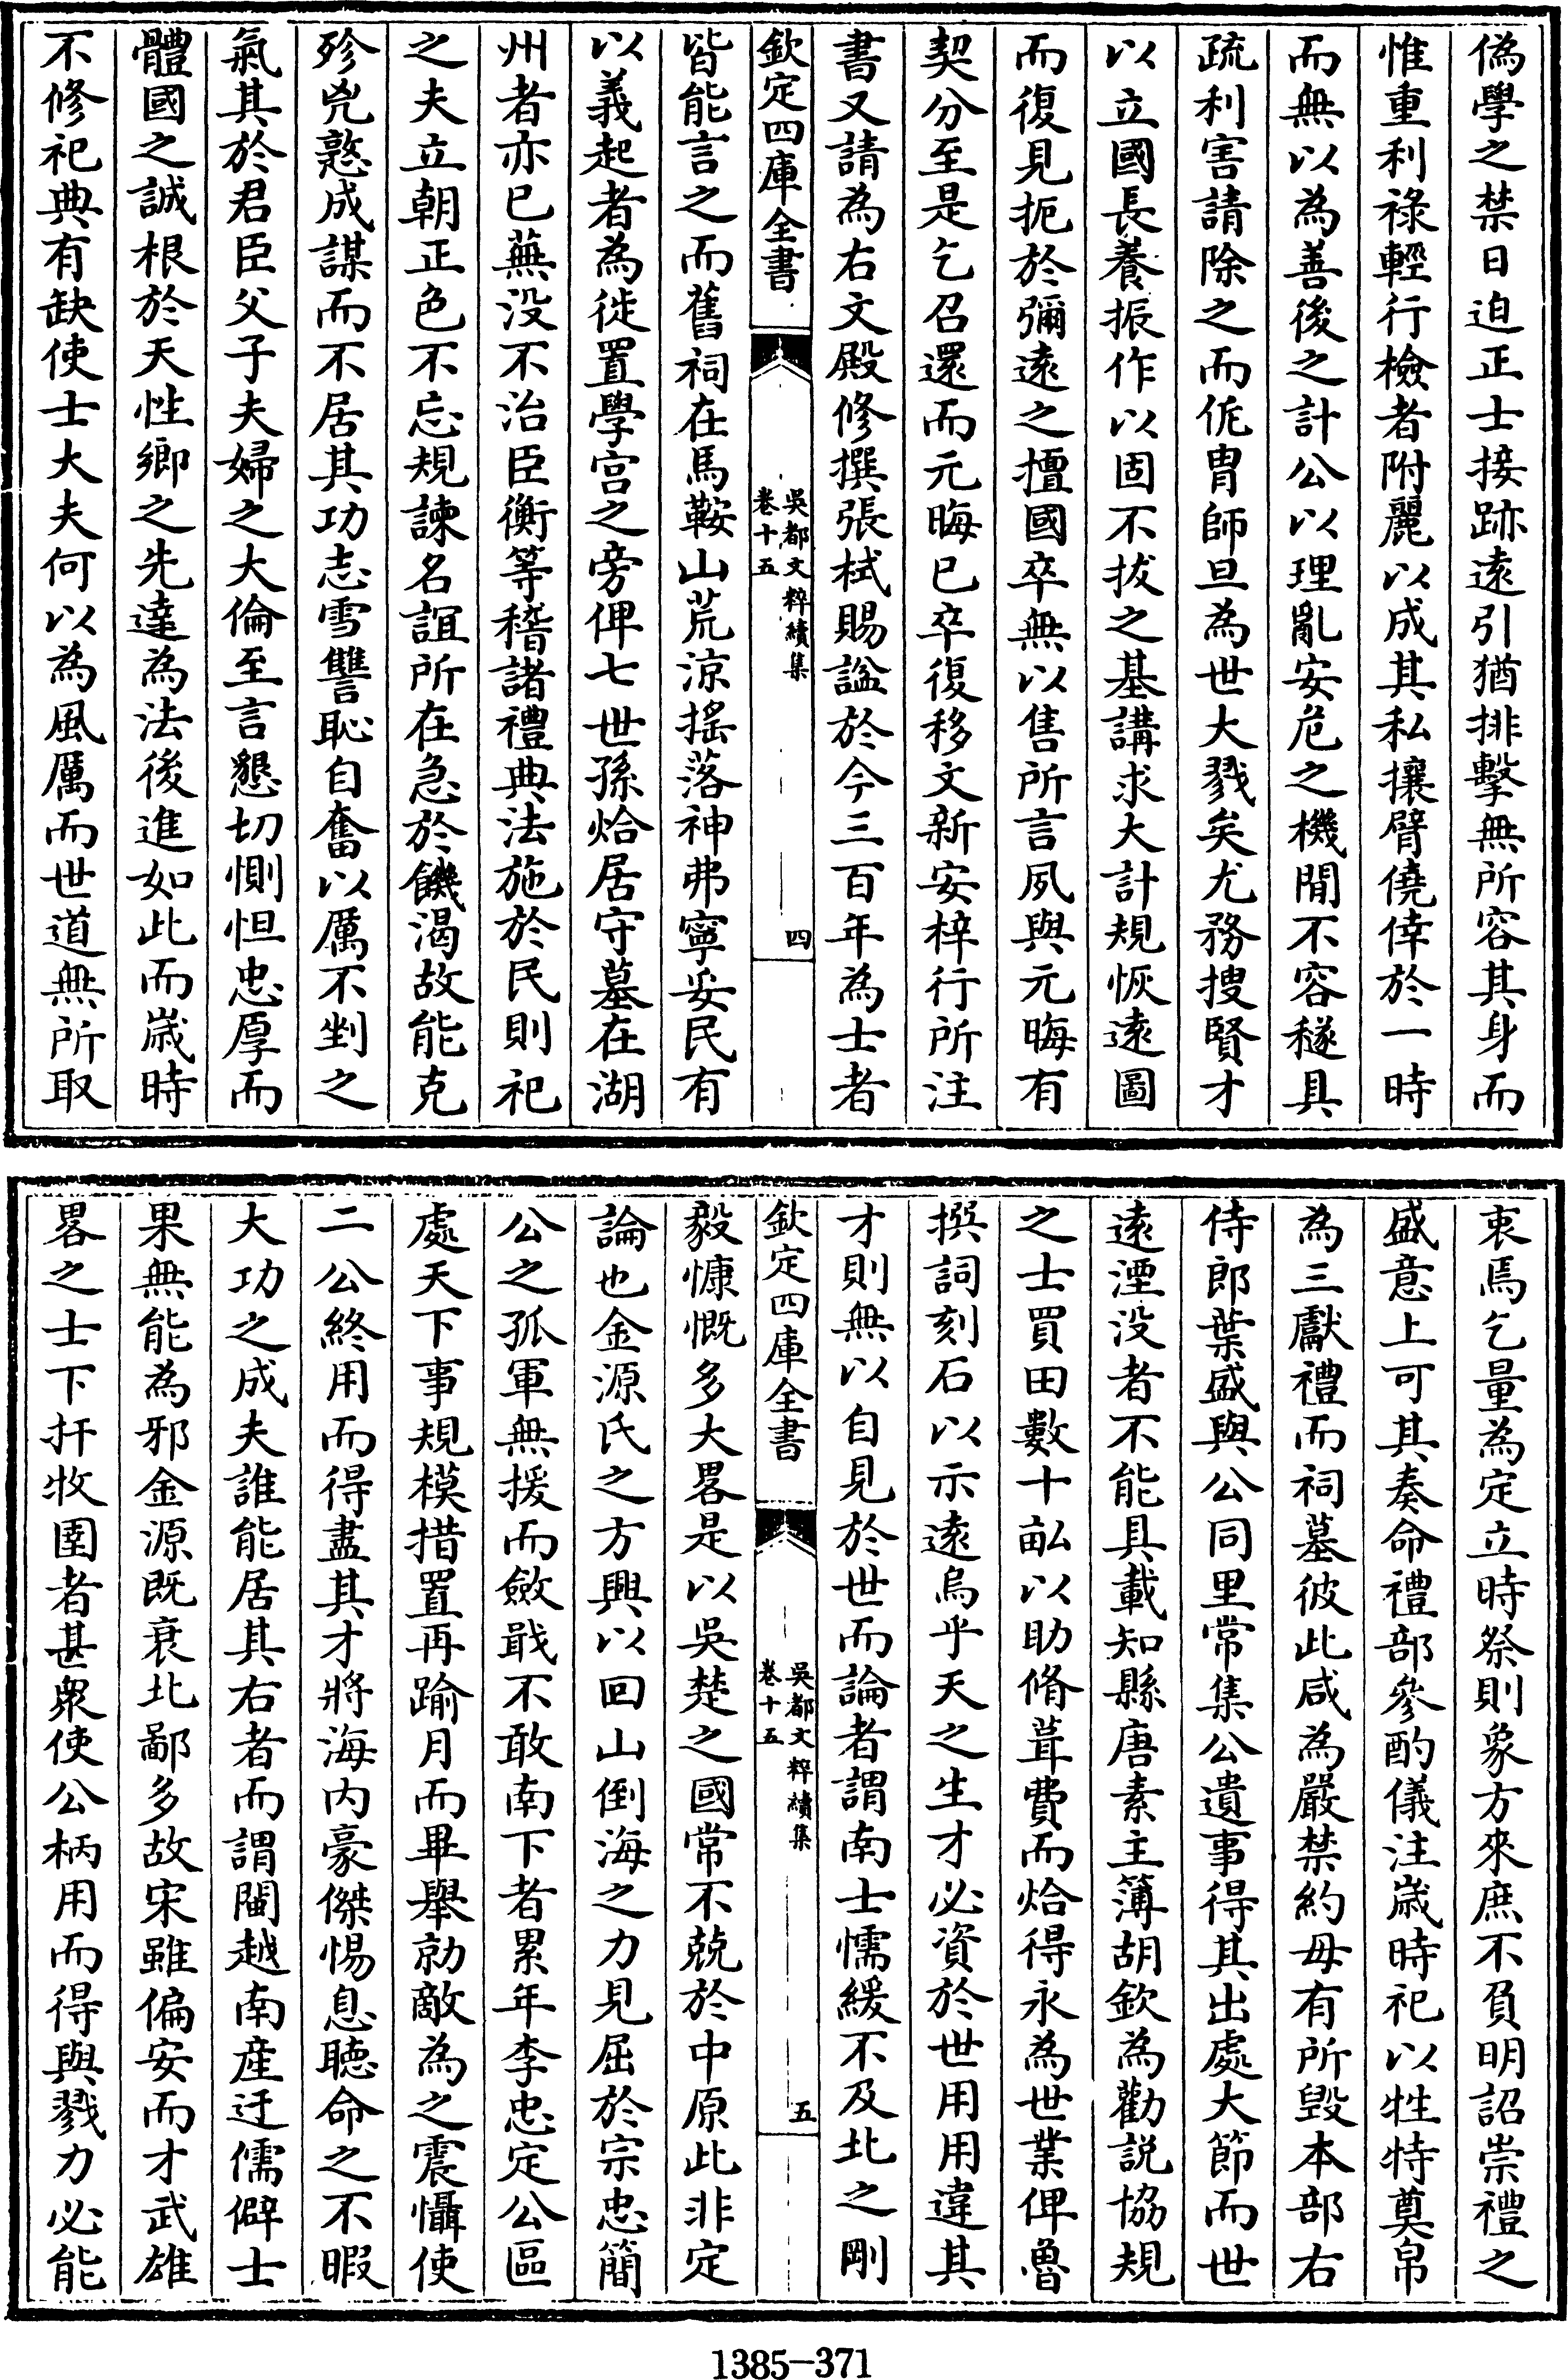 偽學之禁日迫正士接跡遠引猶排擊無所容其身而
惟重利祿輕行檢者附麗以成其私攘臂僥倖於一時
而無以為善後之計公以理亂安危之機間不容穟具
疏利害請除之而侂胄師旦為世大戮矣尤務搜賢才
以立國長養振作以固不拔之基講求大計規恢遠圖
而復見扼於彌遠之擅國卒無以售所言夙與元晦有
契分至是乞召還而元晦已卒復移文新安梓行所注
書又請為右文殿修撰張栻賜諡於今三百年為士者
欽定四庫全書
吳都文粹續集
卷十五
四
皆能言之而舊祠在馬鞍山荒涼搖落神弗寧妥民有
以義起者為徙置學宫之旁俾七世孫烚居守墓在湖
州者亦已蕪没不治臣衡等稽諸禮典法施於民則祀
之夫立朝正色不忘規諫名誼所在急於饑渴故能克
殄兇憝成謀而不居其功志雪讐恥自奮以厲不剉之
氣其於君臣父子夫婦之大倫至言懇切惻怛忠厚而
體國之誠根於天性鄉之先達為法後進如此而嵗時
不修祀典有缺使士大夫何以為風厲而世道無所取
衷焉乞量為定立時祭則象方來庶不負明詔崇禮之
盛意上可其奏命禮部參酌儀注嵗時祀以牲特奠帛
為三獻禮而祠墓彼此咸為嚴禁約毋有所毀本部右
侍郎葉盛與公同里常集公遺事得其出處大節而世
遠湮没者不能具載知縣唐素主簿胡欽為勸説協規
之士買田數十畝以助脩葺費而烚得永為世業俾魯
撰詞刻石以示遠烏乎天之生才必資於世用用違其
才則無以自見於世而論者謂南士懦緩不及北之剛
欽定四庫全書
吳都文粹續集
卷十五
五
毅慷慨多大畧是以吳楚之國常不兢於中原此非定
論也金源氏之方興以回山倒海之力見屈於宗忠簡
公之孤軍無援而斂戢不敢南下者累年李忠定公區
處天下事規模措置再踰月而畢舉勍敵為之震懾使
二公終用而得盡其才將海内豪傑惕息聽命之不暇
大功之成夫誰能居其右者而謂閩越南産迂儒僻士
果無能為邪金源既衰北鄙多故宋雖偏安而才武雄
畧之士下扞牧圉者甚衆使公柄用而得與戮力必能
1385-371